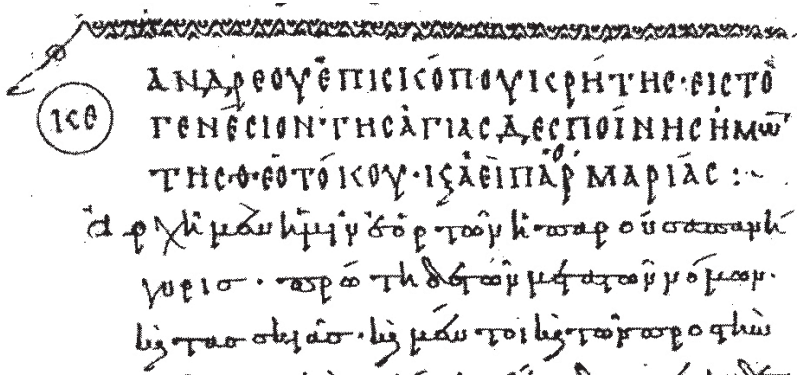 ΑΝΔΡΕΟΥ ἘΠΙϹΚΌΠΟΥ ΚΡΉΤΗϹ· ΕΙϹ ΤῸ
ΓΕΝΈϹΙΟΝ· ΤΗϹ ἉΓΙΑϹ ΔΕϹΠΟΊΝΗϹ ἩΜΩ͂
ΤΗϹ ΘΕΟΤΌΚΟΥ· Κ ἈΕΙΠΑΡ ΜΑΡΊΑϹ :
ἀρχὴ μὲν ἡμῖν ἑορτῶν ἡ παροῦσα πανή
γυρισ· πρώτη δὲ τῶν μετὰ τῶν νόμων·
κ τασ σκιᾶσ· κ μέν τοι κ τῶν